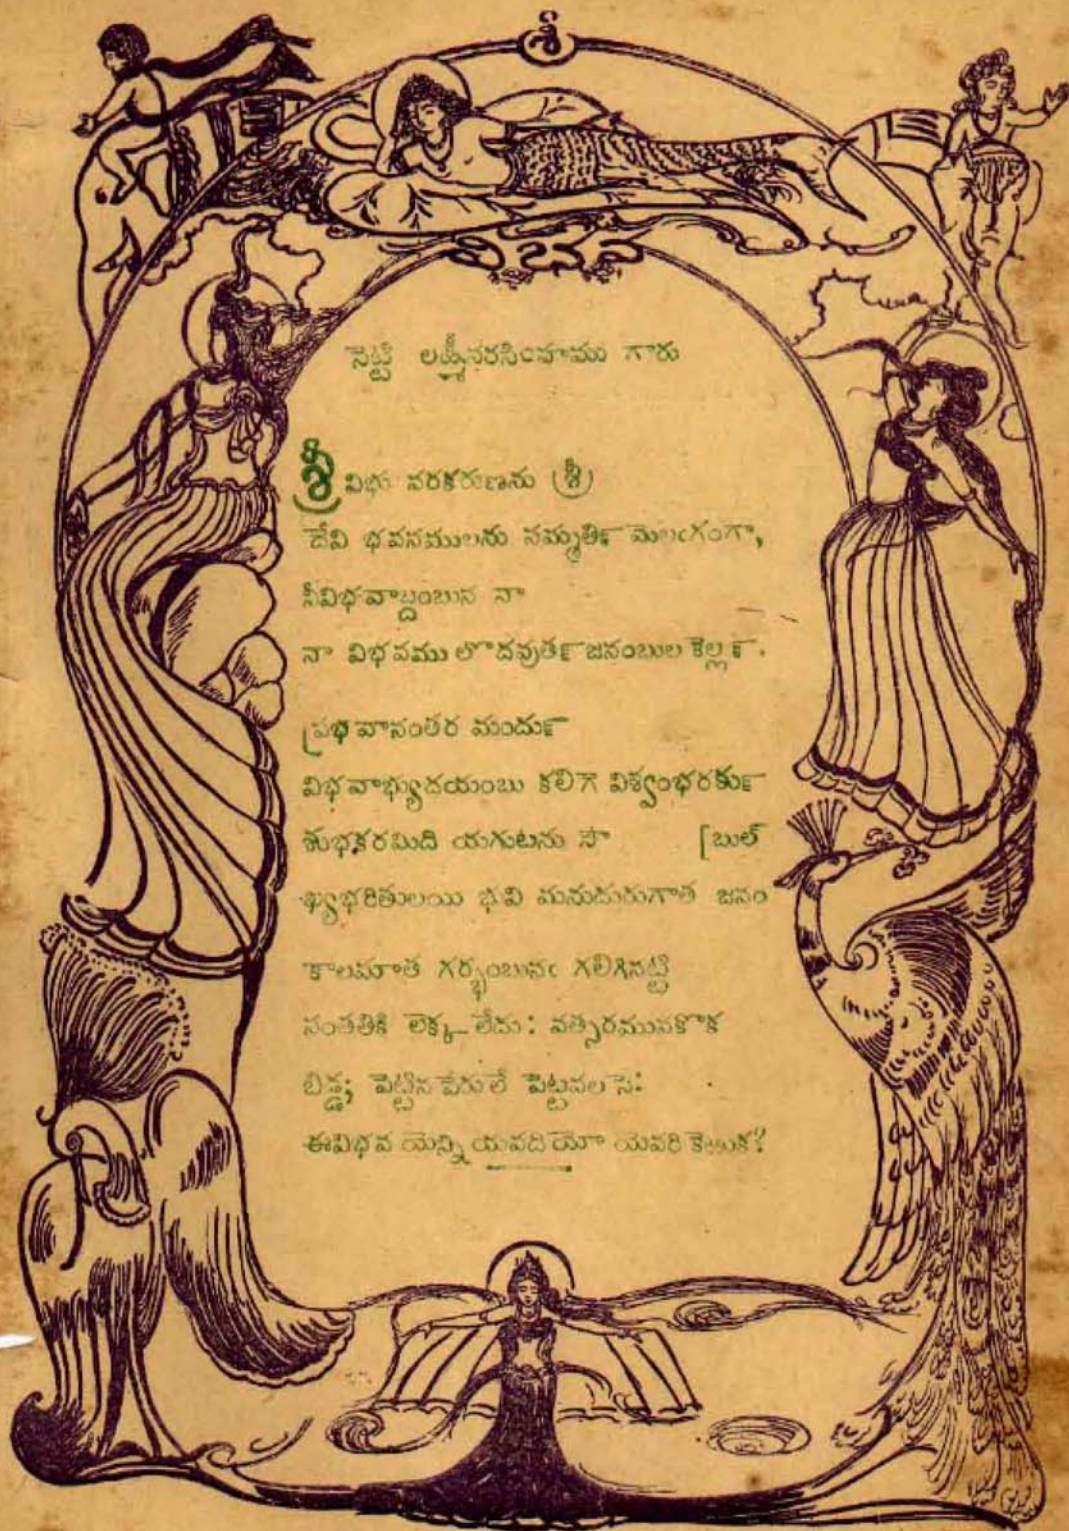 శ్రీ
విభవ
సెట్టి లక్ష్మీనరసింహము గారు
శ్రీ విభు వరకరుణను (శ్రీ)
దేవి భవనములను సమ్మతిఁ మెలఁగంగా,
నీవిభవాబ్దంబున నా
నా విభవము లొదవుతఁ జనంబుల కెల్లఁ.
ప్రభవానంతర మందుఁ
విభవాభ్యుదయంబు కలిగె విశ్వంభరకుఁ
శుభకరమిది యగుటను సౌ [బుల్
ఖ్యభరితులయి భువి మనుదురుగాత జనం
కాలమాత గర్భంబునఁ గలిగినట్టి
సంతతికి లెక్క లేదు: వత్సరమునకొక
బిడ్డ; పెట్టిన పేరులే పెట్టవలసె:
ఈవిభవ యెన్ని యవది యో యెవరి కెఱుక?